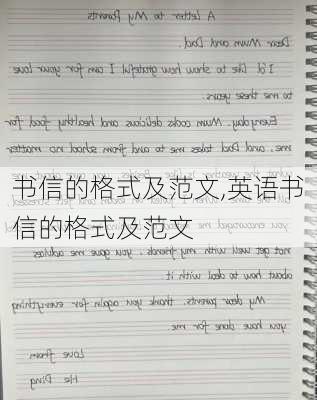 A Letter to My Parents
Dear Mum and Dad,
I'd like to show how grateful I am for your love
to me these years.
Everyday, Mum cooks delicious and healthy food for
me, and Dad takes me to and from school no matter
书信的格式及范文,英语书
信的格式及范文
not get well with my friends, you gave me advices
about how to deal with it
My dear parents, thank you again for everything
you have done for me
Love from
He Ping